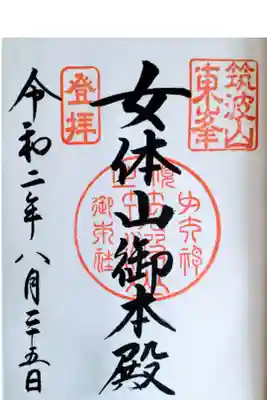 筑波山
東峯
女体山御本殿
登拝
御本社
令和二年八月二五日